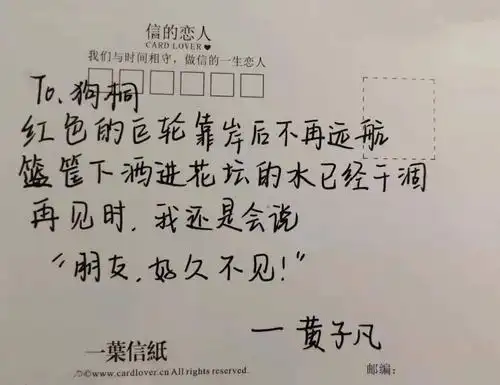 信的恋人
CARD LOVER♥
我们与时间相守，做信的一生恋人
To.狗桐
红色的巨轮靠岸后不再远航
篮筐下洒进花坛的水已经干涸
再见时，我还是会说
“朋友，好久不见！”
—黄子凡
一葉信紙
©www.cardlover.cn All rights reserved.
邮编：